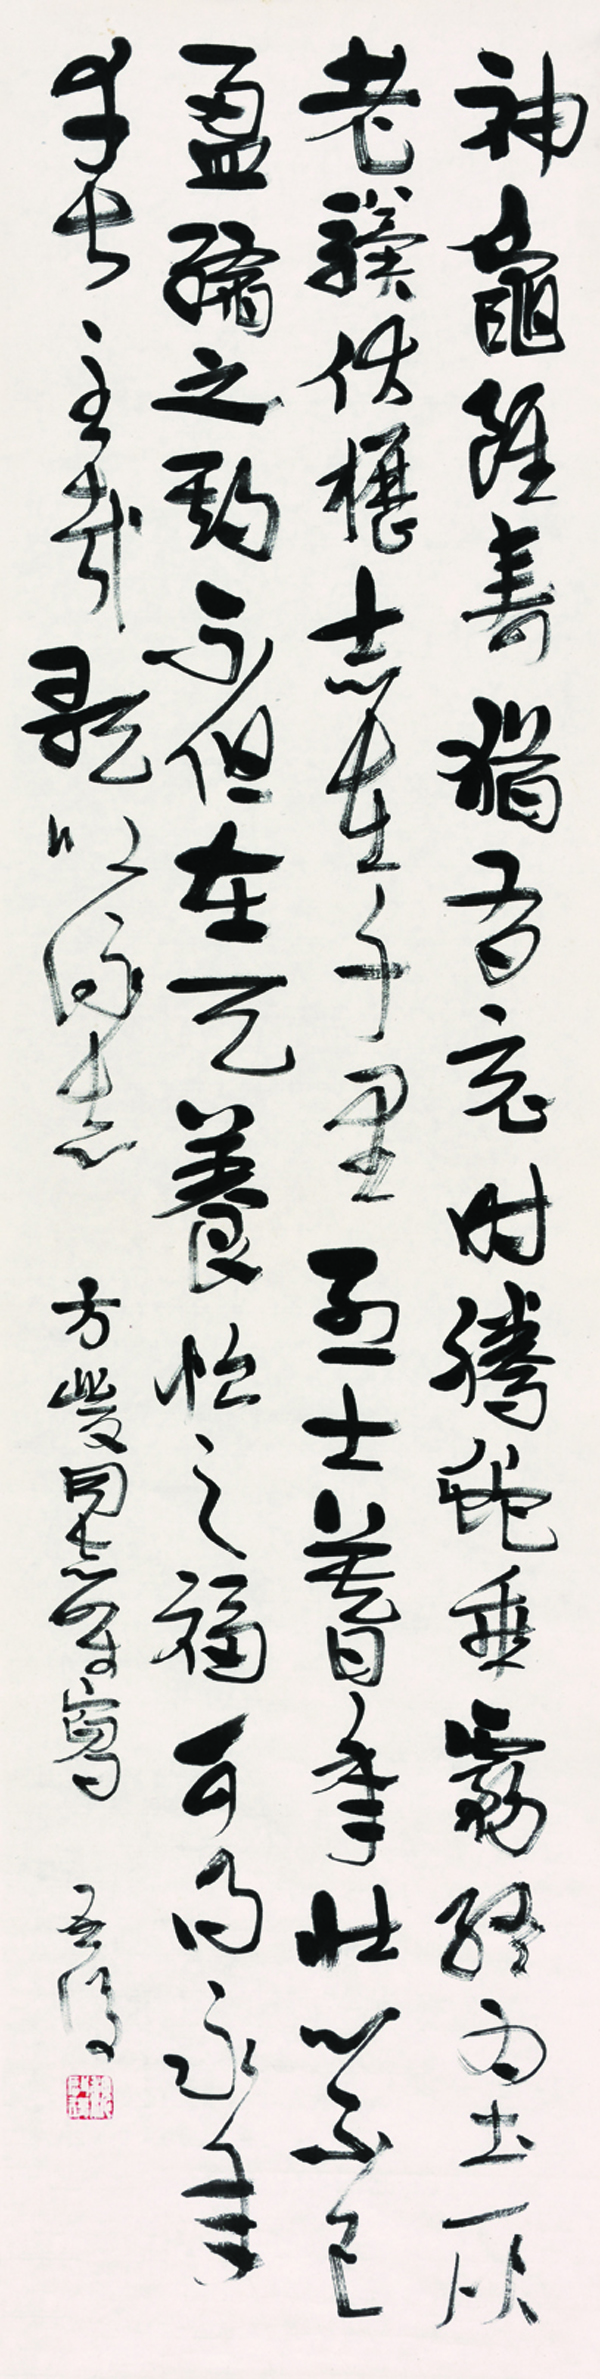 神龜雖壽猶有竟時騰蛇乘霧終為土灰
老驥伏櫪志在千里烈士暮年壯心不已
盈縮之期不但在天養怡之福可得永年
幸甚至哉歌以詠志 方同志屬寫